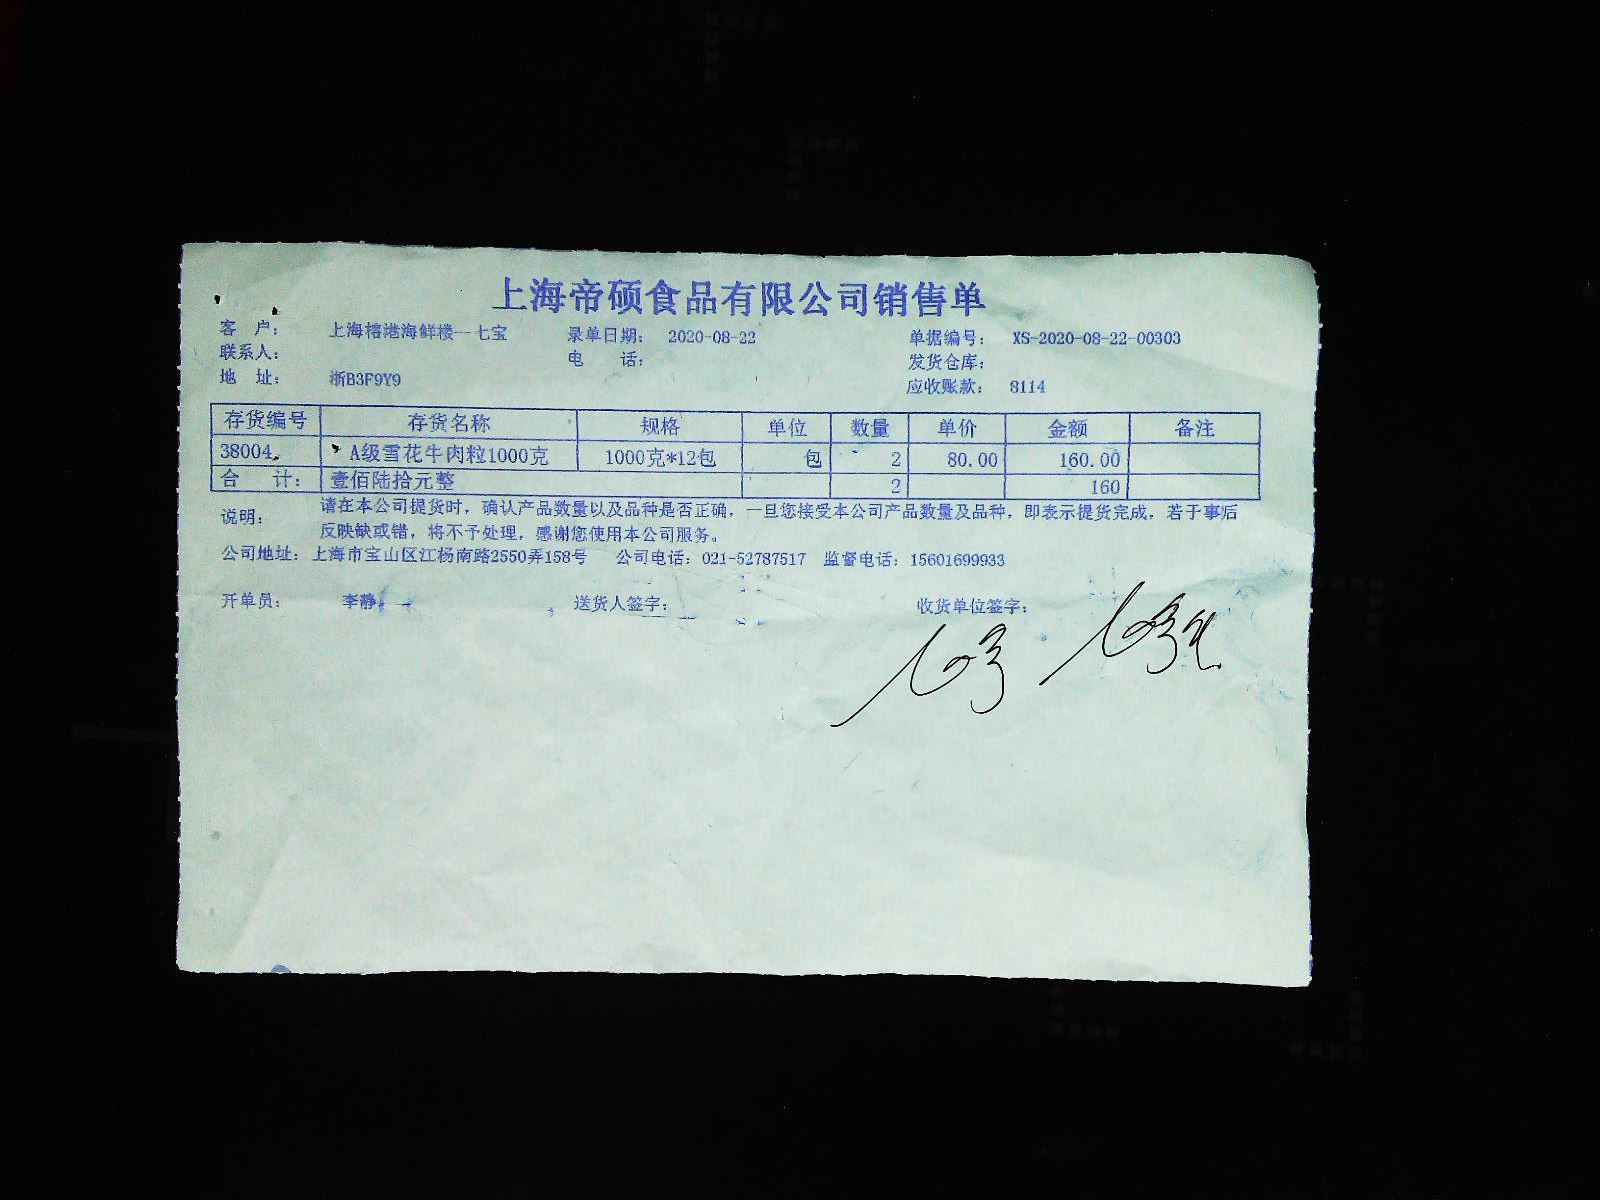 上海帝硕食品有限公司销售单
客 户： 上海榕港海鲜楼--七宝 录单日期： 2020-08-22 单据编号： XS-2020-08-22-00303
联系人： 电 话： 发货仓库：
地 址： 浙B3F9Y9 应收账款： 8114
存货编号 存货名称 规格 单位 数量 单价 金额 备注
38004 A级雪花牛肉粒1000克 1000克*12包 包 2 80.00 160.00
合 计： 壹佰陆拾元整 2 160
说明： 请在本公司提货时，确认产品数量以及品种是否正确，一旦您接受本公司产品数量及品种，即表示提货完成，若于事后
反映缺或错，将不予处理，感谢您使用本公司服务。
公司地址：上海市宝山区江杨南路2550弄158号 公司电话：021-52787517 监督电话：15601699933
开单员： 李静 送货人签字： 收货单位签字：